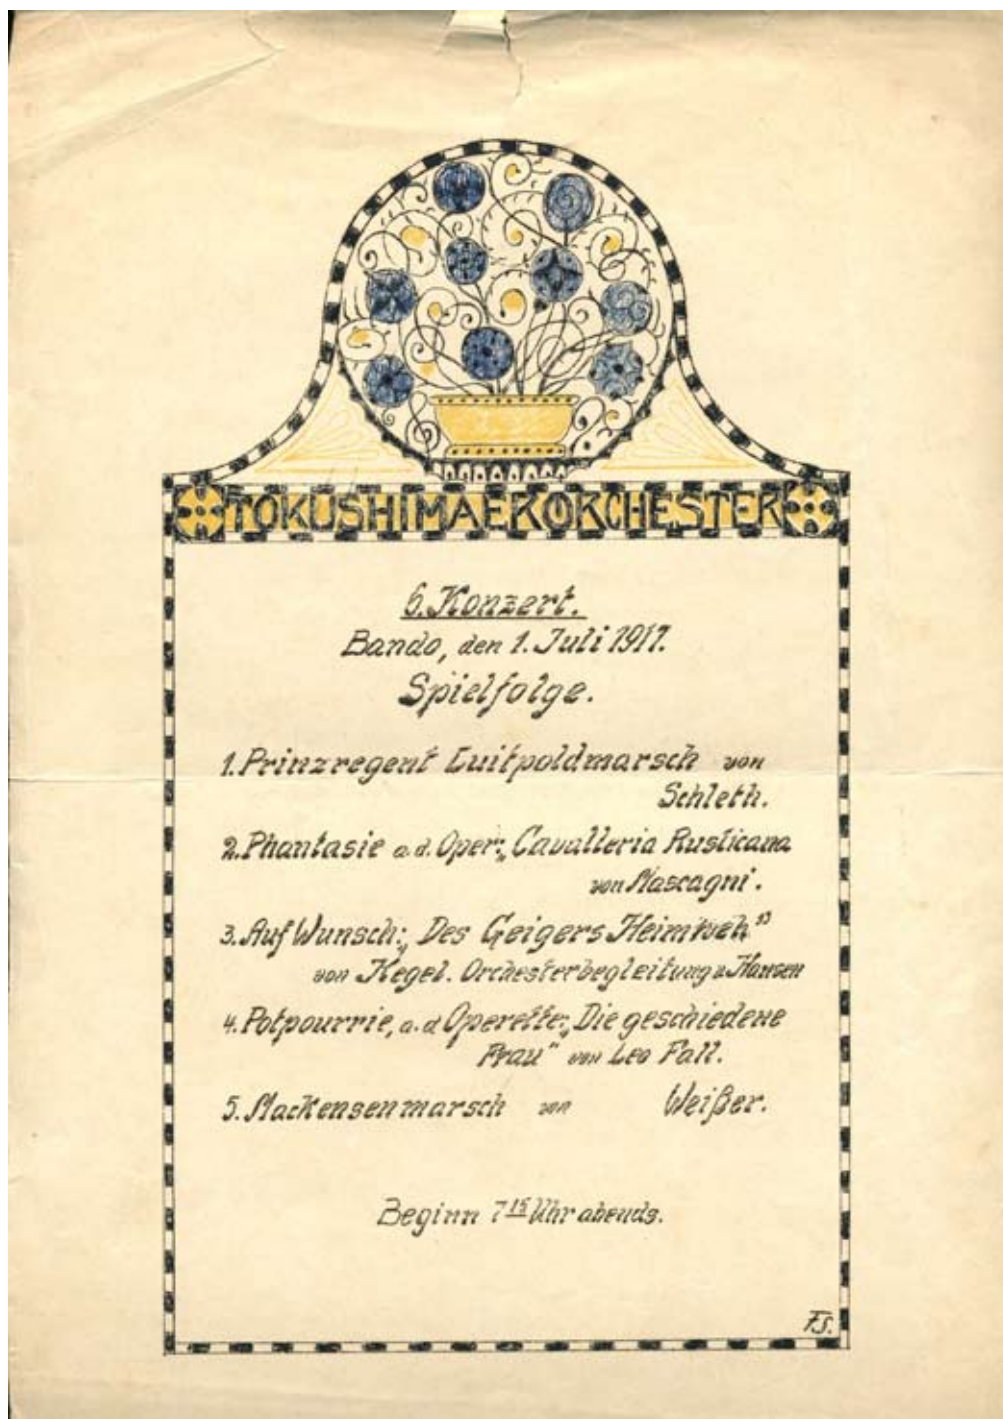 TOKUSHIMAER ORCHESTER
6. Konzert.
Bando, den 1. Juli 1917.
Spielfolge.
1. Prinzregent Luitpoldmarsch von
Schleth.
2. Phantasie a. d. Oper: „Cavalleria Rusticana
von Mascagni.
3. Auf Wunsch: „Des Geigers Heimweh"
von Kegel. Orchesterbegleitung v. Hansen
4. Potpourrie, a. d Operette: „Die geschiedene
Frau" von Leo Fall.
5. Mackensenmarsch von Weißer.
Beginn 7 15 Uhr abends.
F.S.